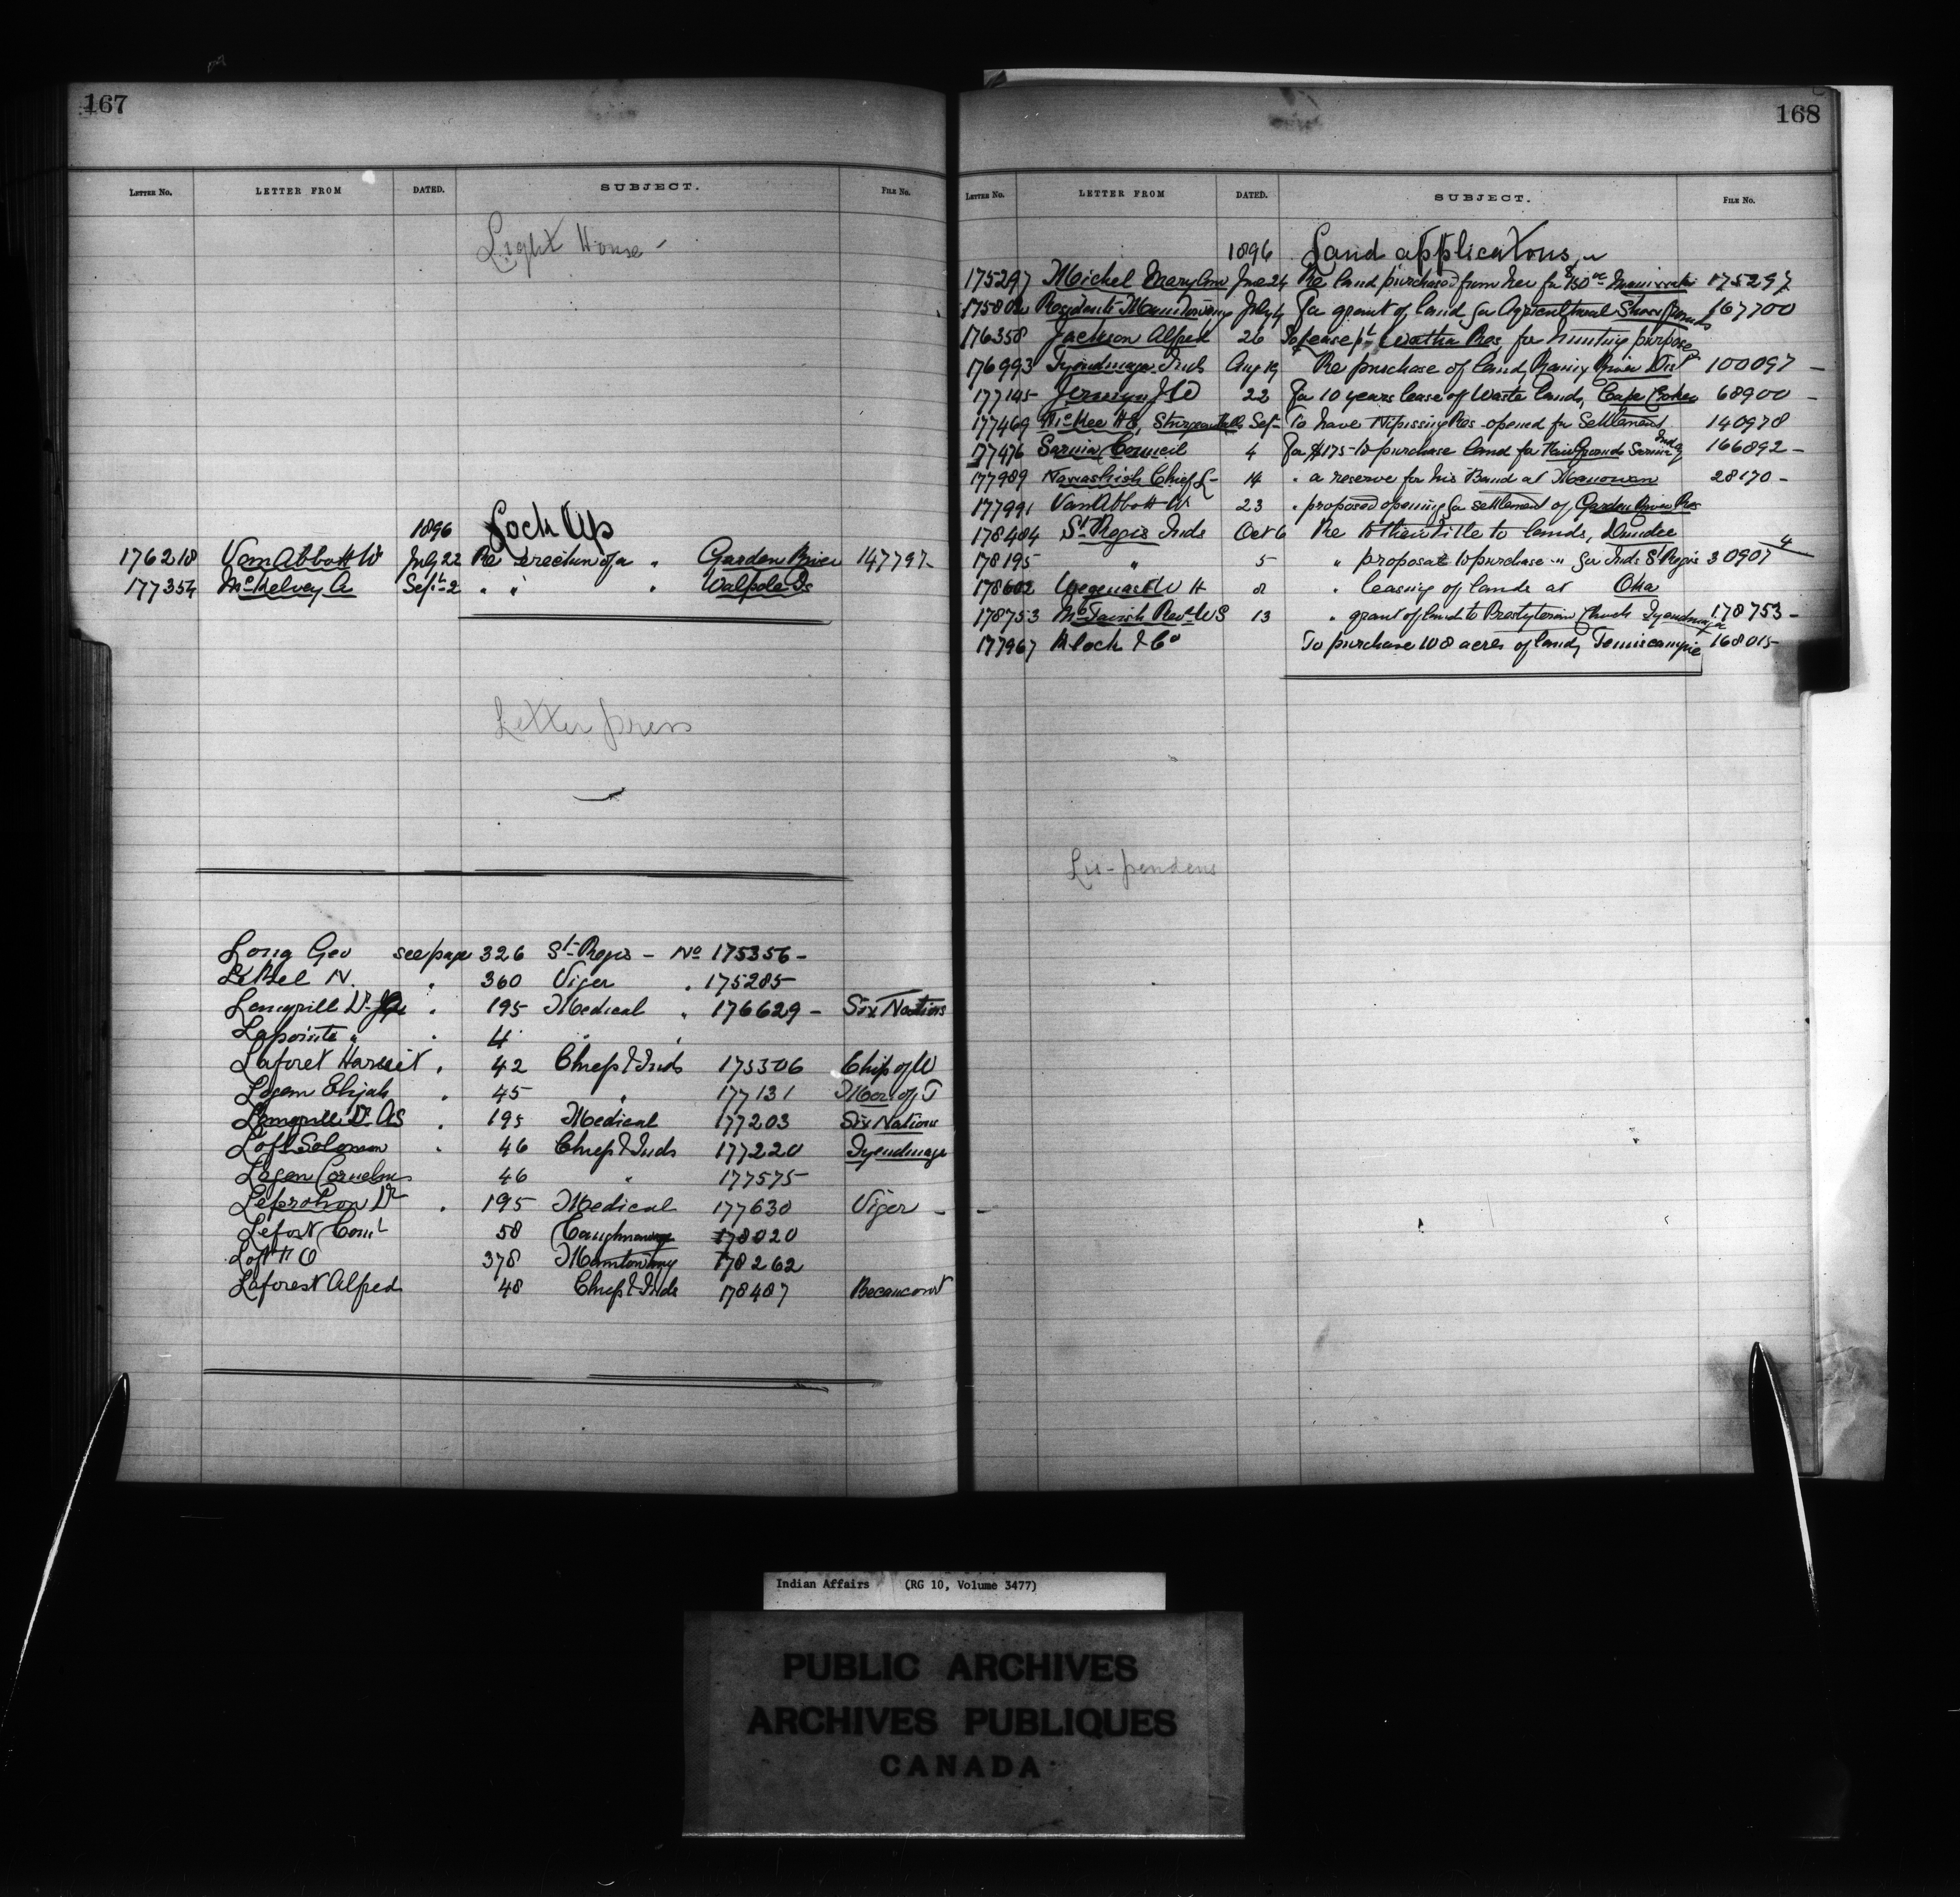 167
LETTER No. LETTER FROM DATED. SUBJECT. FILE No.
Light House -
1896 Lock Up
176218 VanAbbott W July 22 Re erection of a " Garden River 147797-
177354 McKelvey A Sept 2 " " " Walpole Is
Letter press
Long Geo see page 326 St Regis - No 175356-
LeBel N. " 360 Viger " 175285
Langrill Dr " 195 Medical " 176629 - Six Nations
Lapointe " " 4 " "
Laforet Harriet " 42 Chiefs & Inds 175306 Chip of W
Logan Elijah " 45 " 177131 Mor of T
Langrill Dr AS " 195 Medical 177203 Six Nations
Loft Solomon " 46 Chiefs & Inds 177220 Tyendinaga
Logan Cornelius 46 " 177575
Leprohon Dr " 195 Medical 177630 Viger -
Lefort Coml 58 Caughnawaga 178020
Loft F O 378 Manitowaning 178262
Laforest Alfred 48 Chiefs & Inds 178487 Becancour
168
LETTER No. LETTER FROM DATED. SUBJECT. FILE No.
1896 Land applications
175297 Michel Mary Ann June 24 Re land purchased from her for $150 oc Maniwaki 175297
175802 Residents Manitowaning July 4 For grant of land for Agricultural Show Grounds 167700
176358 Jackson Alfred 26 To lease pt Watha Res, for hunting purposes
176993 Tyendinaga Inds Aug 19 Re purchase of land, Rainy River Dist 100097 -
177145 Jermyn J W 22 For 10 years lease of Waste lands, Cape Croker 68900 -
177469 McKee H S, Sturgeon Falls Sept To have Nipissing Res opened for Settlement 140978
177476 Sarnia Council 4 For $175- to purchase land for Fair Grounds Sarnia 166892 -
177989 Nawashish Chief L- 14 " a reserve for his Band at Manowan 28170 -
177991 VanAbbott W 23 " proposed opening for settlement of Garden River Res
178484 St Regis Inds Oct 6 Re to their title to lands, Dundee
178195 " 5 " proposal to purchase " for Inds St Regis 30907 4
178602 W H 8 " leasing of lands at Oka
178753 McTavish Revd W S 13 " grant of land to Presbyterian Church Tyendinaga 178753 -
177967 Klock & Co To purchase 108 acres of land, Temiscamingue 168015-
Lis-pendens
Indian Affairs (RG 10, Volume 3477)
PUBLIC ARCHIVES
ARCHIVES PUBLIQUES
CANADA